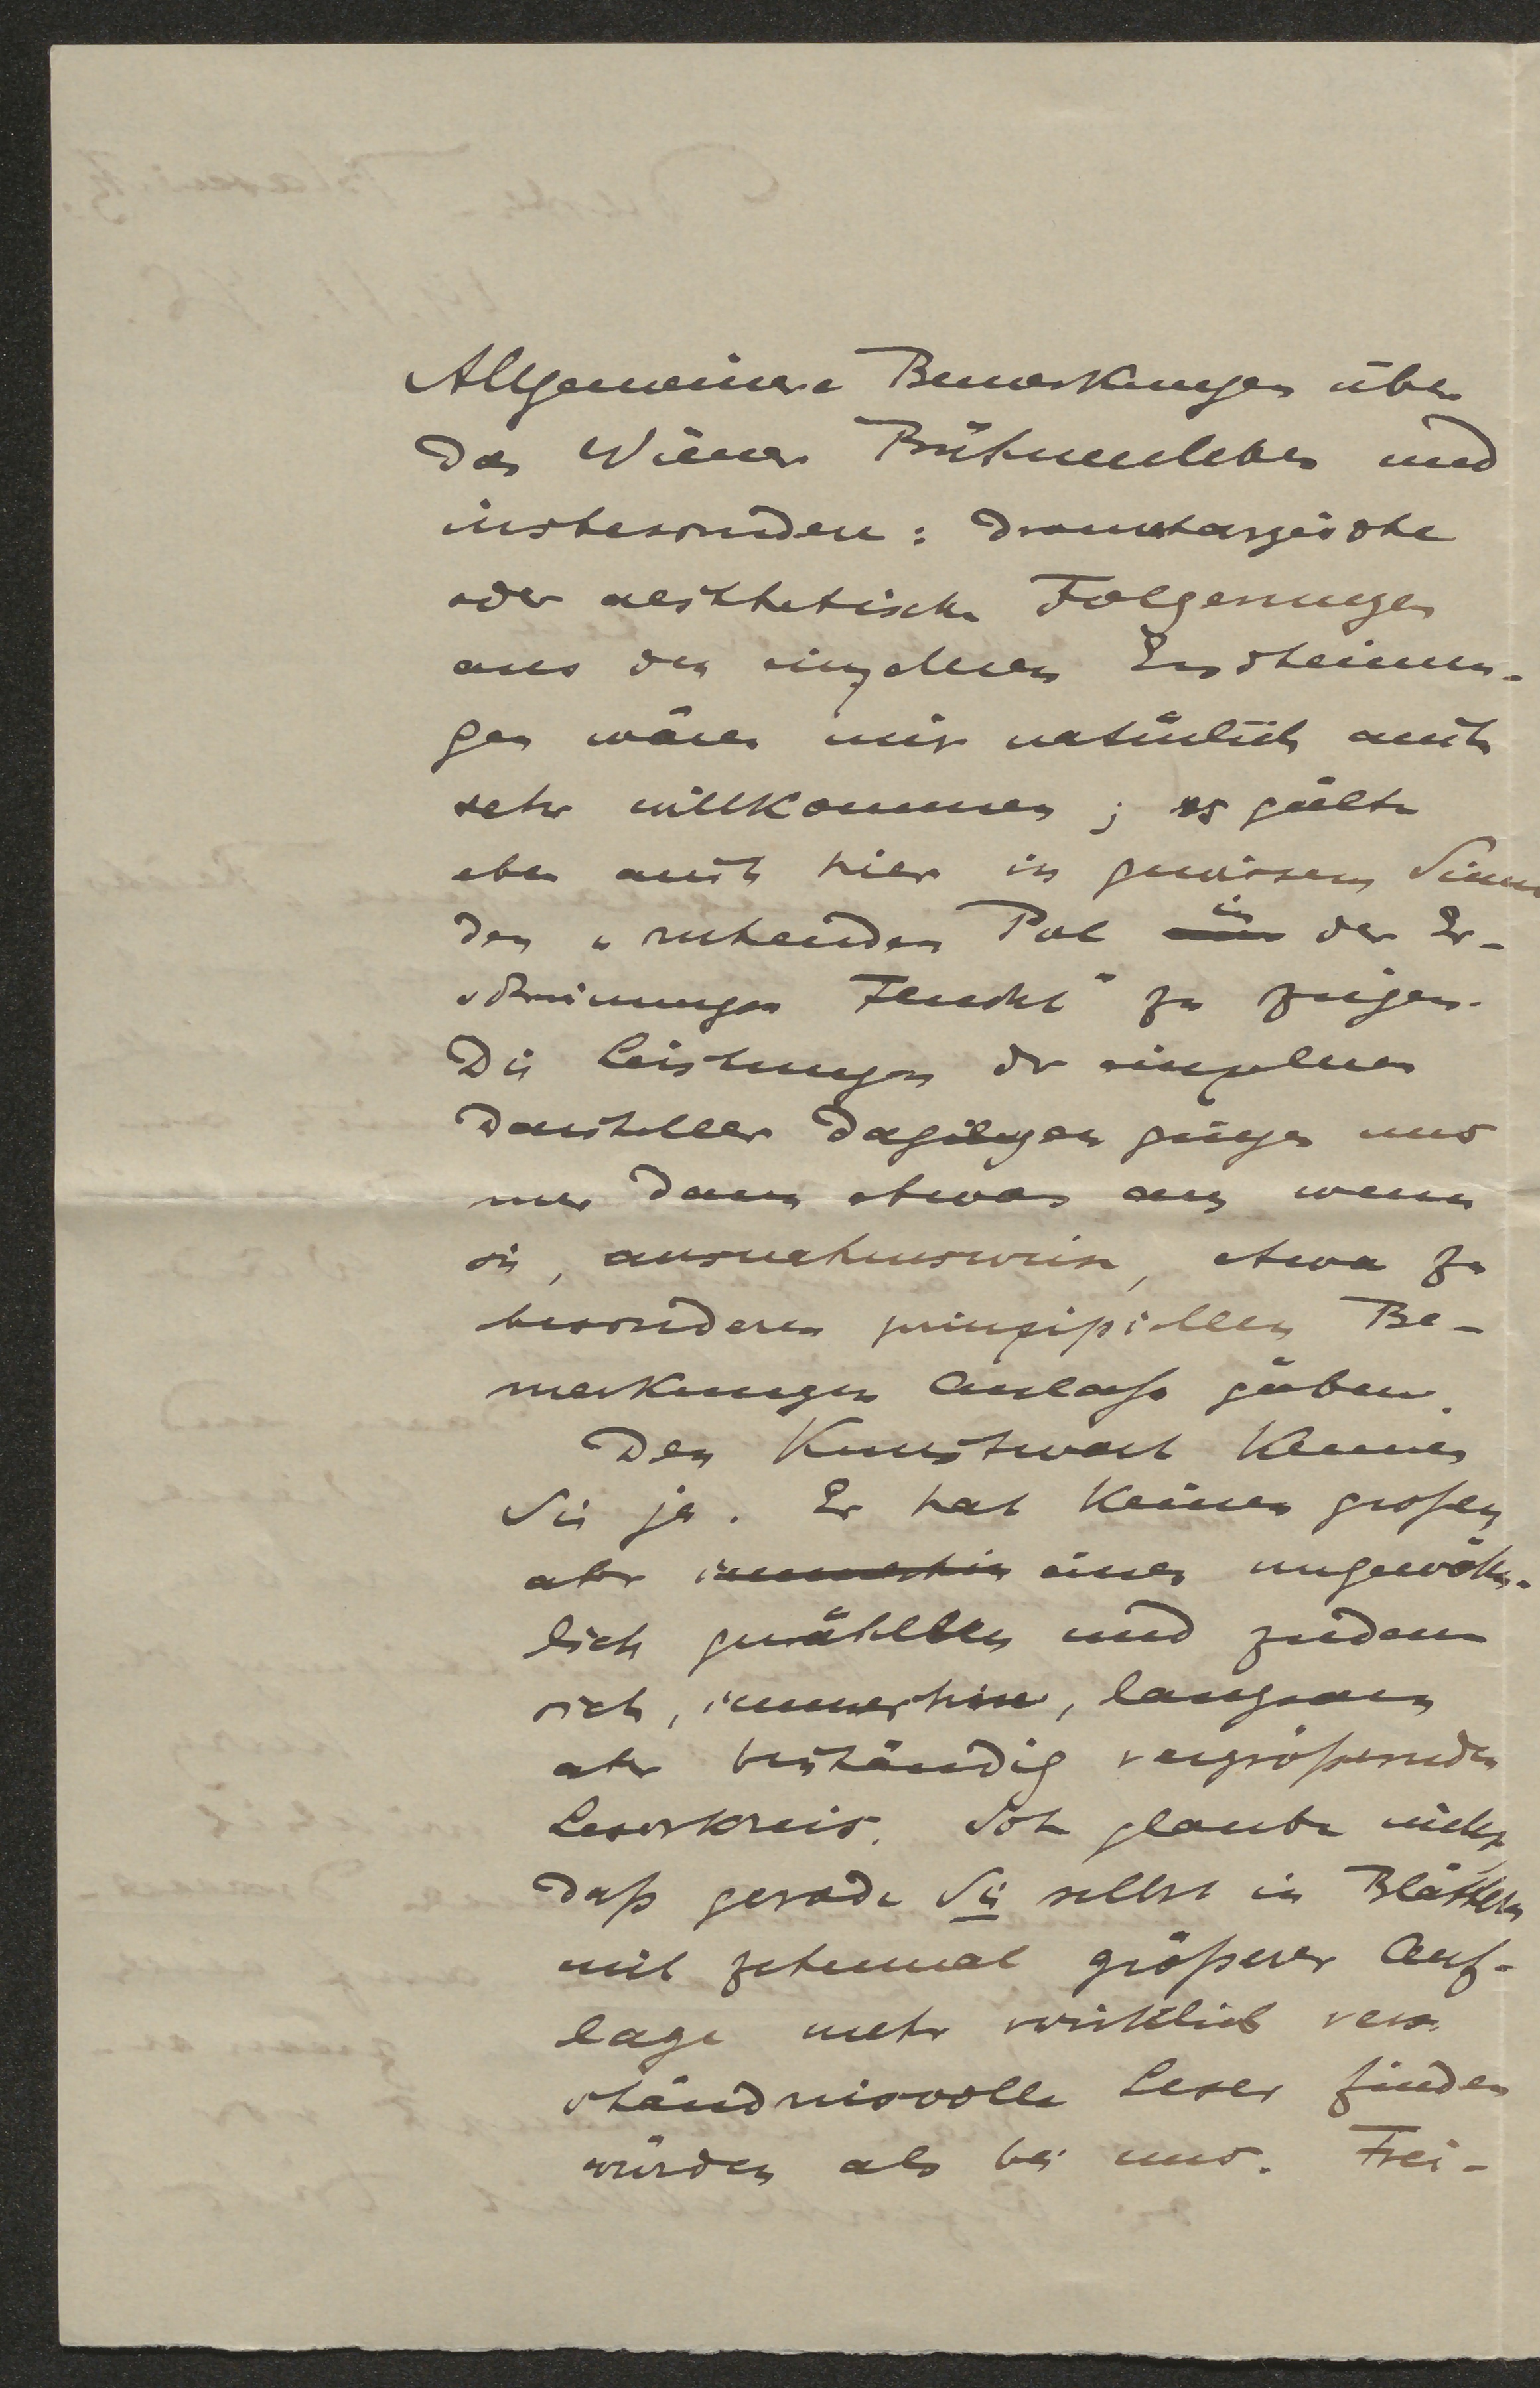 Allgemeinere Bemerkungen über
das Wiener Bühnenleben und
insbesondere: dramaturgische
oder aesthetische Folgerungen
aus den einzelnen Erscheinun-
gen wären mir natürlich auch
sehr willkommen; es gälte
eben auch hier in gewissem Sinne
den „ruhenden Pol in der Er-
scheinungen Flucht“ zu zeigen.
Die Leistungen der einzelnen
Darsteller dagegen gingen uns
nur dann etwas an, wenn
sie, ausnahmsweise, etwa zu
besonderen prinzipiellen Be-
merkungen Anlass gäben.
Den Kunstwart kennen
Sie ja. Er hat keinen großen
aber immerhin einen ungewöhn-
lich gewählten und zudem
sich, immerhin, langsam
aber beständig vergrößernden
Leserkreis. Ich glaube nicht,
daß gerade Sie selbst in Blättern
mit zehnmal größerer Auf-
lage mehr wirklich ver-
ständnisvolle Leser finden
würden als bei uns. Frei-